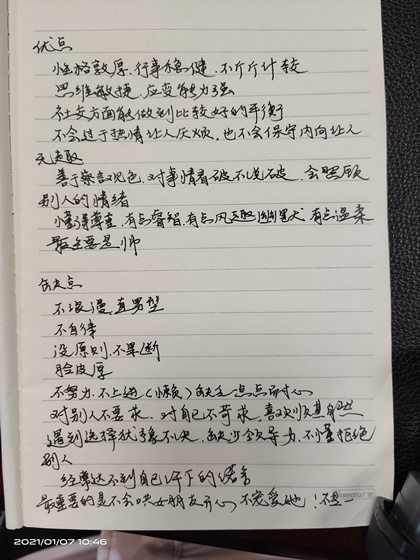 优点
性格敦厚,行事稳健,不斤斤计较
思维敏捷,应变能力强
社交方面能做到比较好的平衡
不会过于热情让人厌烦,也不会保守内向让人
无趣
善于察言观色,对事情看破不说破,会照顾
别人的情绪
懂得尊重,有点睿智,有点风趣幽默,有点温柔
最主要是帅
缺点
不浪漫,直男型
不自律
没原则,不果断
脸皮厚
不努力,不上进(懒)缺乏点点耐心
对别人不要求,对自己不苛求,喜欢顺其自然
遇到选择犹豫不决,缺少领导力,不懂拒绝
别人
经常达不到自己许下的诺言
最重要的是不会哄女朋友开心,不宠爱她!不是一
2021/01/07 10:46